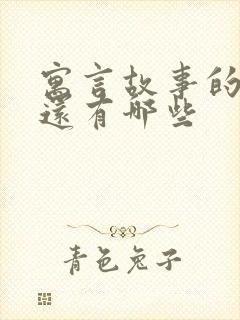 寓言故事的
還有哪些
青色兔子